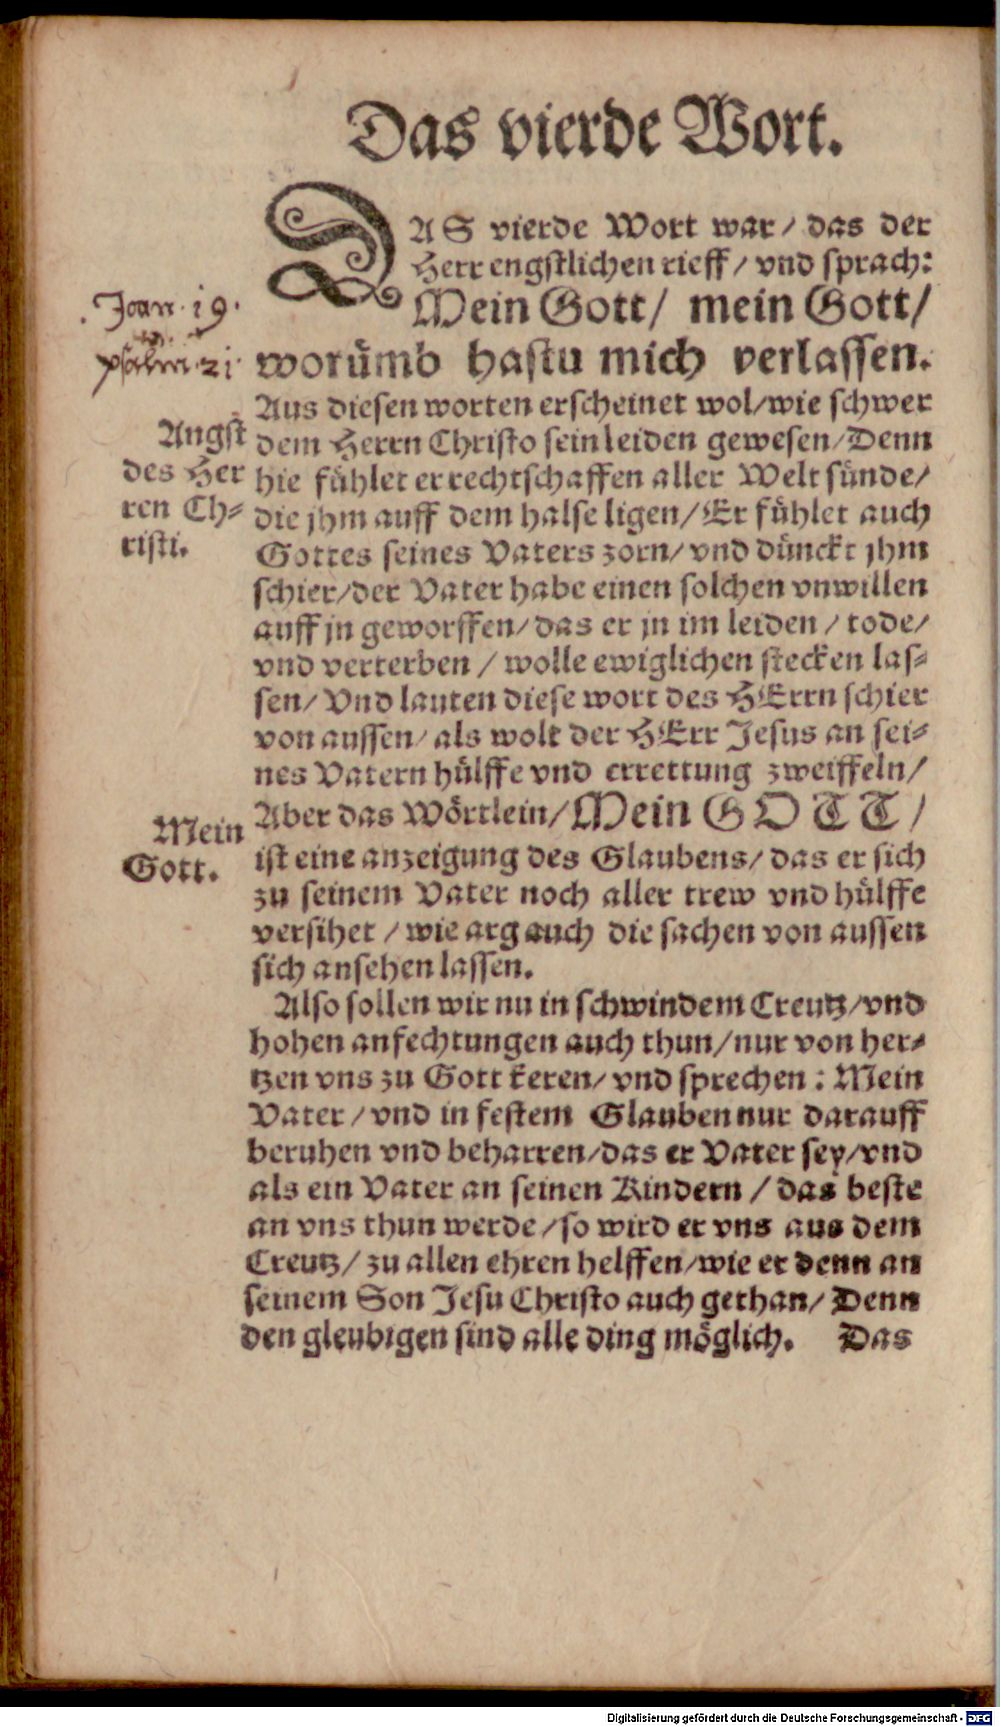 Das vierde Wort.
DAS vierde Wort war / das der
Herr engstlichen rieff / vnd sprach:
Mein Gott / mein Gott /
worümb hastu mich verlassen.
Joan. 19.
psalm. 21.
Aus diesen worten erscheinet wol / wie schwer
dem Herrn Christo sein leiden gewesen / Denn
hie fühlet er rechtschaffen aller Welt sünde /
die jhm auff dem halse ligen / Er fühlet auch
Gottes seines Vaters zorn / vnd dünckt jhm
schier / der Vater habe einen solchen vnwillen
auff jn geworffen / das er jn im leiden / tode /
vnd verterben / wolle ewiglichen stecken las-
sen / Vnd lauten diese wort des HErrn schier
von aussen / als wolt der HErr Jesus an sei-
nes Vatern hülffe vnd errettung zweiffeln /
Angst
des Her
ren Ch-
risti.
Aber das Wörtlein / Mein GOTT /
ist eine anzeigung des Glaubens / das er sich
zu seinem Vater noch aller trew vnd hülffe
versihet / wie arg auch die sachen von aussen
sich ansehen lassen.
Mein
Gott.
Also sollen wir nu in schwindem Creutz / vnd
hohen anfechtungen auch thun / nur von her-
tzen vns zu Gott keren / vnd sprechen : Mein
Vater / vnd in festem Glauben nur darauff
beruhen vnd beharren / das er Vater sey / vnd
als ein Vater an seinen Kindern / das beste
an vns thun werde / so wird er vns aus dem
Creutz / zu allen ehren helffen / wie er denn an
seinem Son Jesu Christo auch gethan / Denn
den gleubigen sind alle ding möglich. Das
Digitalisierung gefördert durch die Deutsche Forschungsgemeinschaft - DFG